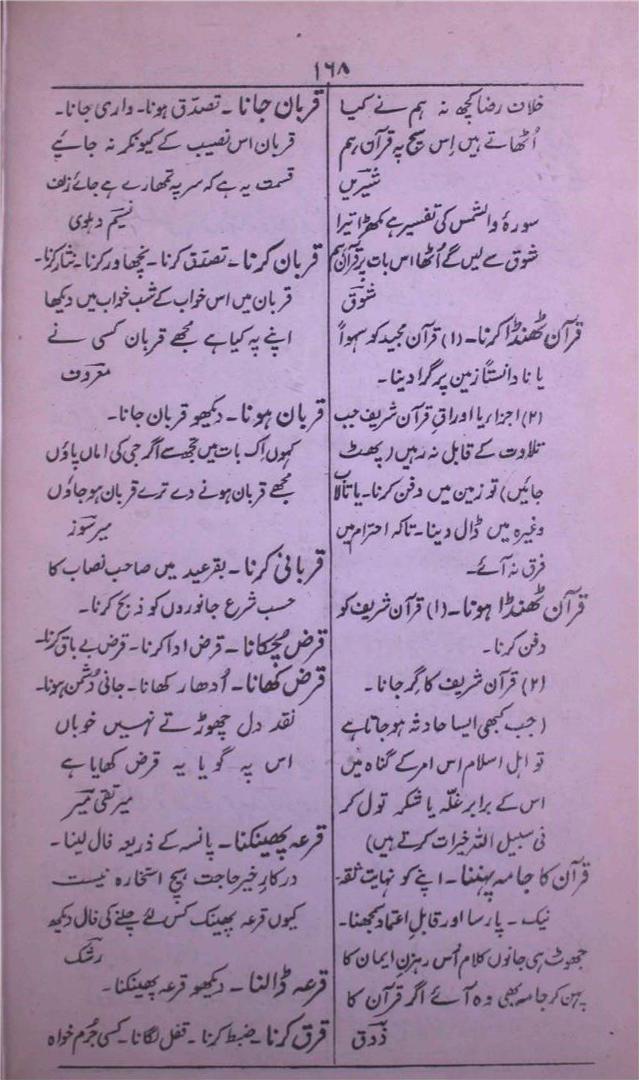 ۱۶۸
خلاف رضا کچھ نہ ہم نے کیا
اُٹھاتے ہیں اِس سچ پہ قرآن ہم
شیریں
سورۂ والشمس کی تفسیر ہے کمھڑا تیرا
شوق سے لیں گے اُٹھا اس بات پر قرآن ہم
شوق
قرآن ٹھنڈا کرنا۔ (۱) قرآن مجید کو سہواً
یا نادانستاً زمین پر گرا دینا۔
(۲) اجزا، یا اوراقِ قرآن شریف جب
تلاوت کے قابل نہ رہیں (پھٹ
جائیں) تو زمین میں دفن کرنا۔ یا تالاب
وغیرہ میں ڈال دینا۔ تاکہ احترام میں
فرق نہ آئے۔
قرآن ٹھنڈا ہونا۔ (۱) قرآن شریف کو
دفن کرنا۔
(۲) قرآن شریف کا گِر جانا۔
(جب کبھی ایسا حادثہ ہو جاتا ہے
تو اہل اسلام اس امر کے گناہ میں
اس کے برابر غلّہ یا شکر تول کر
فی سبیل اللہ خیرات کرتے ہیں)
قرآن کا جامہ پہننا۔ اپنے کو نہایت ثقہ۔
نیک۔ پارسا اور قابلِ اعتماد سمجھنا۔
جھوٹ ہی جانوں کلام اُس رہزنِ ایمان کا
پہن کر جامہ بھی وہ آئے اگر قرآن کا
ذوق
قربان جانا۔ تصدّق ہونا۔ واری جانا۔
قربان اس نصیب کے کیونکر نہ جائیے
قسمت یہ ہے کہ سر پہ تمھارے ہے جائے زلف
نسیم دہلوی
قربان کرنا۔ تصدّق کرنا۔ نچھاور کرنا۔ نثار کرنا۔
قربان میں اس خواب کے شب خواب میں دیکھا
اپنے پہ کیا ہے مجھے قربان کسی نے
معروف
قربان ہونا۔ دیکھو قربان جانا۔
کہوں اِک بات میں تجھ سے اگر جی کی اماں پاؤں
مجھے قربان ہونے دے ترے قربان ہو جاؤں
میر سوز
قربانی کرنا۔ بقرعید میں صاحب نصاب کا
حسب شرع جانوروں کو ذبح کرنا۔
قرض چکانا۔ قرض ادا کرنا۔ قرض بے باق کرنا۔
قرض کھانا۔ اُدھار کھانا۔ جانی دُشمن ہونا۔
نقد دل چھوڑتے نہیں خوباں
اس پہ گویا یہ قرض کھایا ہے
میر تقی میر
قرعہ پھینکنا۔ پانسہ کے ذریعہ فال لینا۔
در کارِ خیر حاجت ہیچ استخارہ نیست
کیوں قرعہ پھینک کس لئے چلنے کی فال دیکھ
رشک
قرعہ ڈالنا۔ دیکھو قرعہ پھینکنا۔
قرق کرنا۔ ضبط کرنا۔ قفل لگانا۔ کسی جُرم خواہ